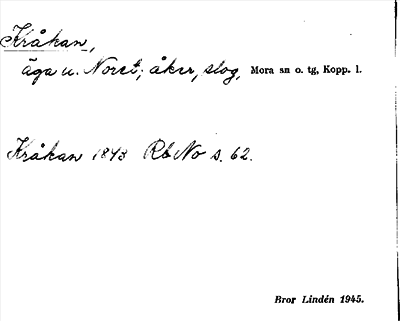 Kråkan,
äga u. Noret; åker, slog, Mora sn o. tg, Kopp. l.
Kråkan 1843 Rb No s. 62.
Bror Lindén 1945.